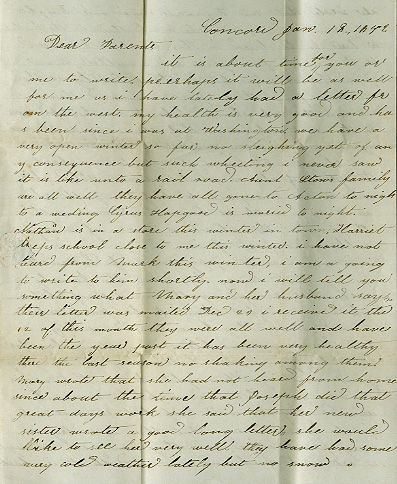 Concord Jan. 18, 1872
Dear Parents
it is about time for you or
me to write, peerhaps it will be as well
for me as i have lately had a letter fr
om the west. my health is very good and ha
s been since i was at Washington we have a
very open winter so far, no sleighing yet of an
y consequence but such wheeling i never saw
it is like unto a rail road Aunt family
are all well they have all gone to Acton to nigh
to a weding Cyrus Hapgood is maried to night.
Nathan is in a store this winter in town, Harriet
keeps school close to me this winter. i have not
heard from Mark this winter, i am a going
to write to him shortly, now i will tell you
something what Mary and her husband says,
their letter was mailed Dec i received it the
12 of this month they were all well and have
been the year past it has been very healthy
there the last season no shaking among them
Mary wrote that she had not heard from home
since about the time that Joseph did that
great days work she said that her new
sister wrote a good long letter, she would
like to see her very well they have had some
very cold weather lately but no snow